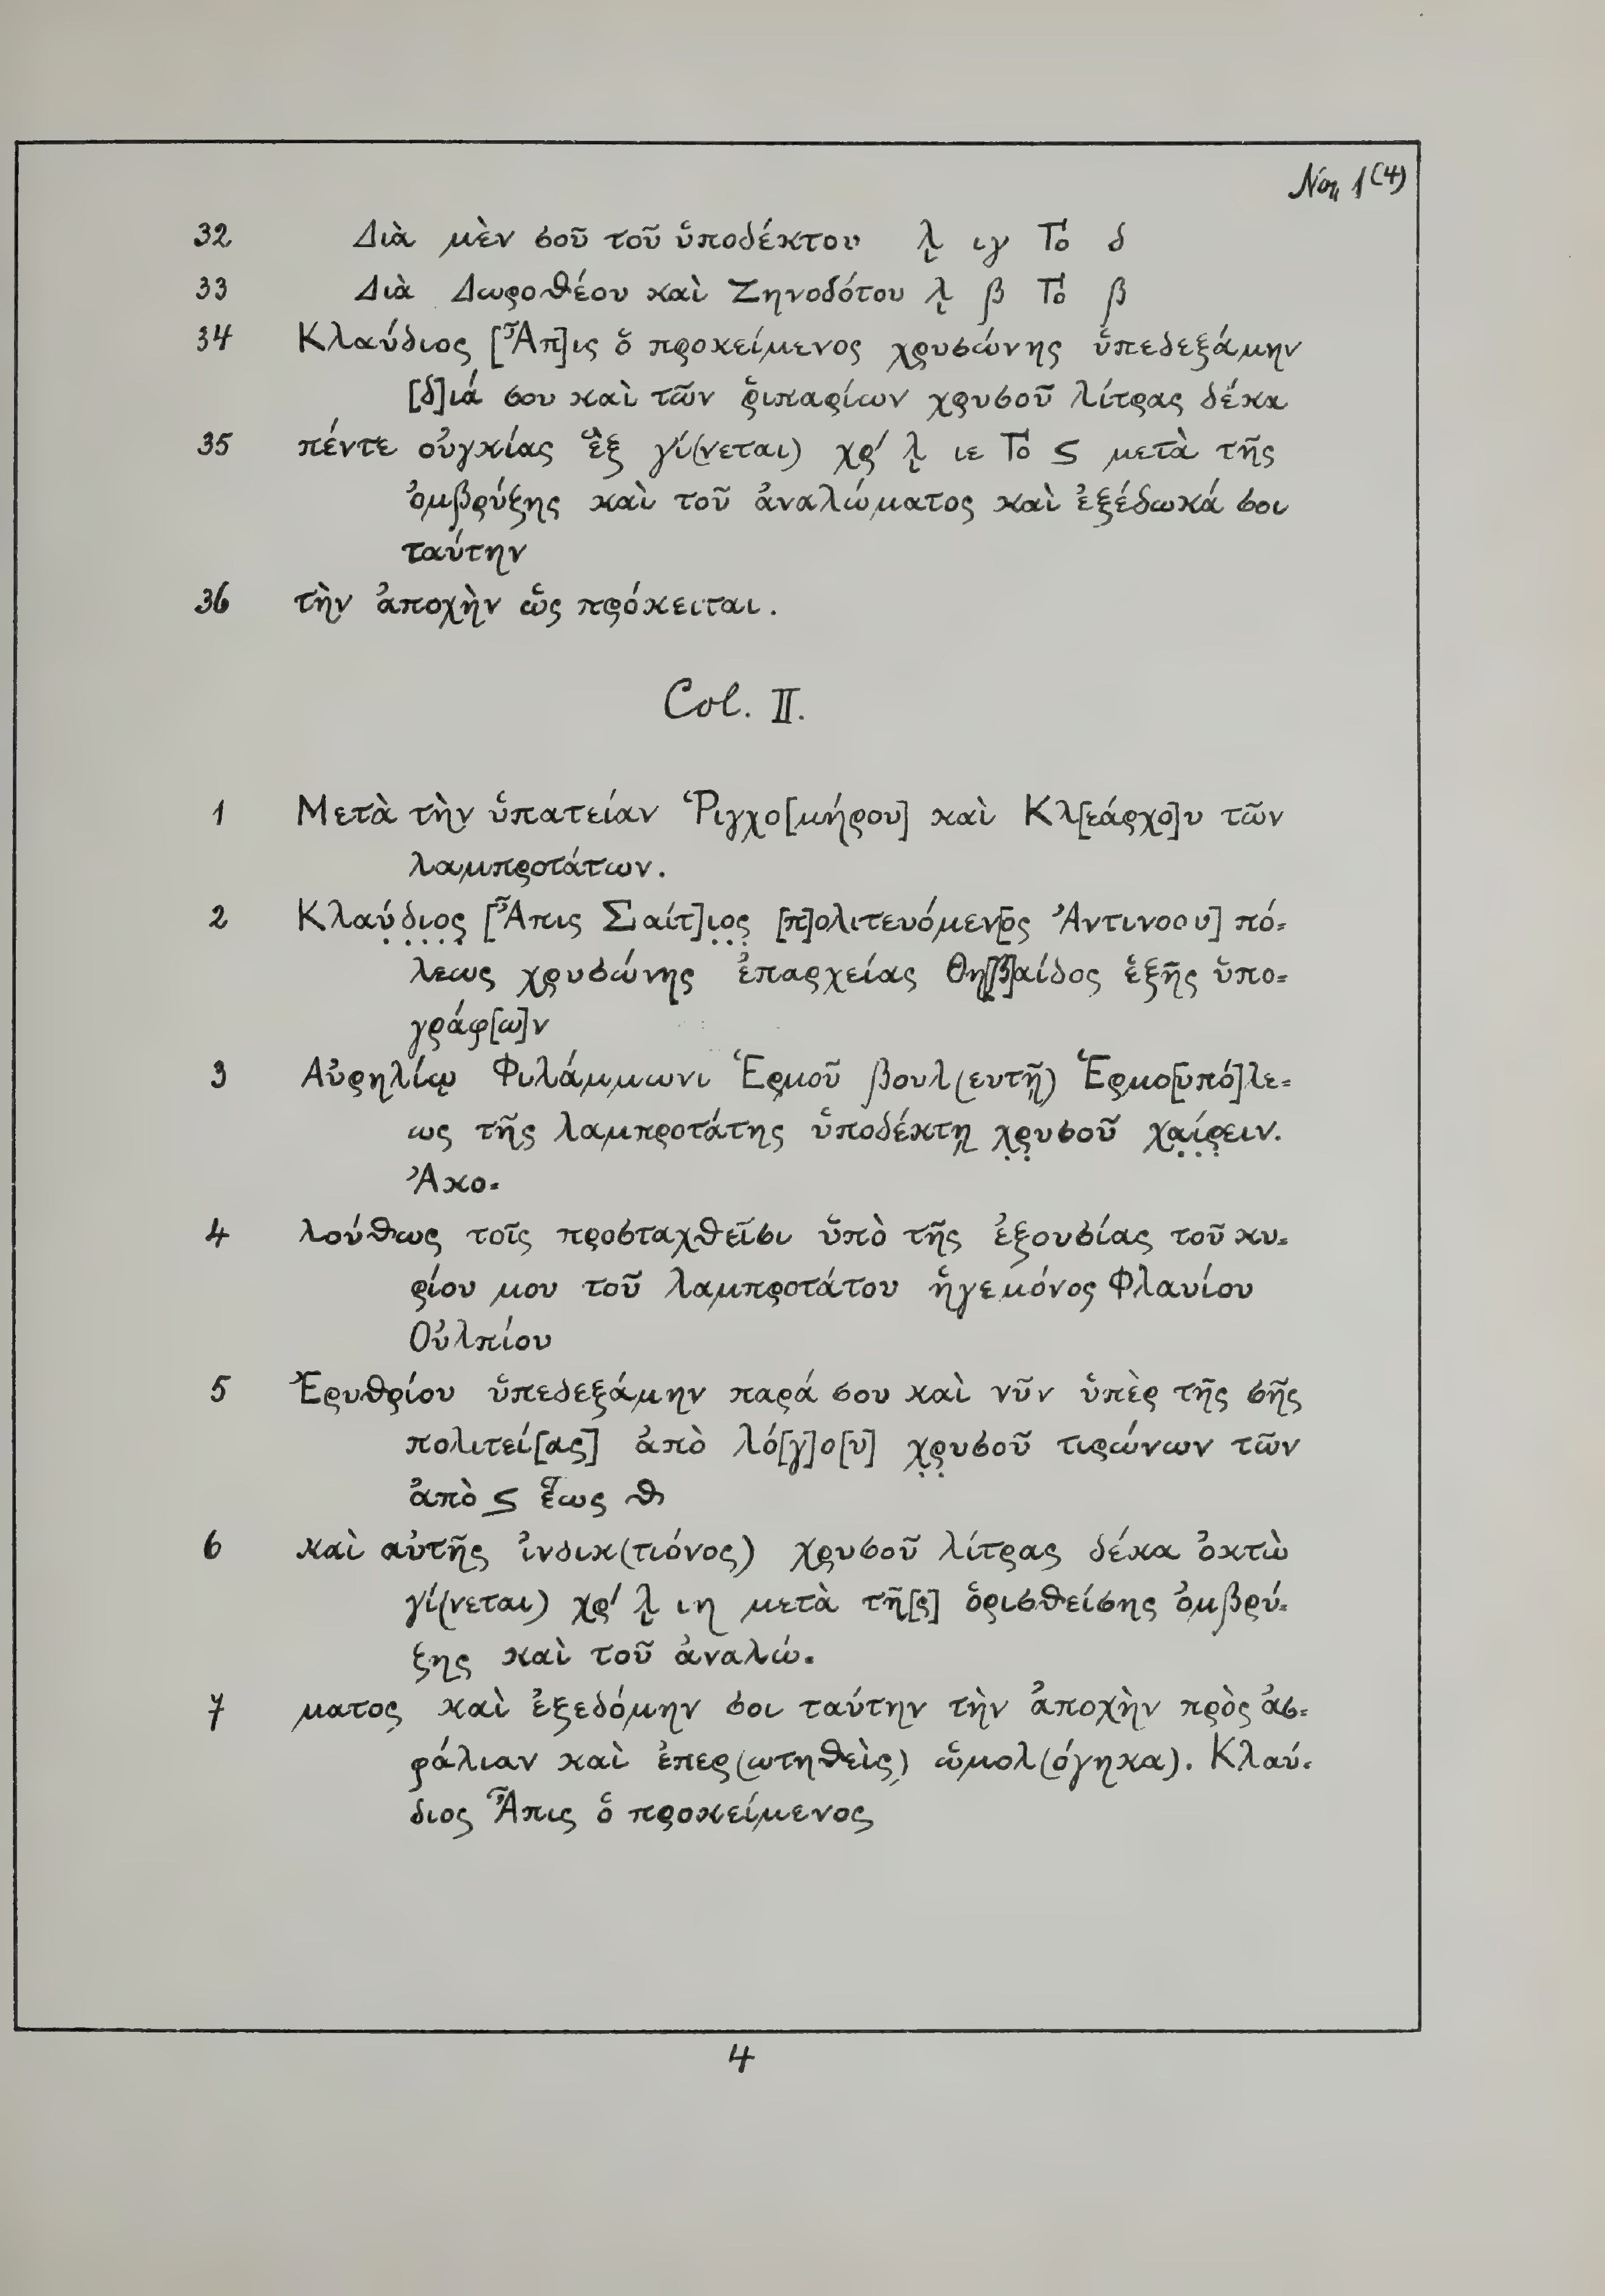 No. 1 (4)
32 Διὰ μὲν σοῦ τοῦ ὑποδέκτου λ̣ ιγ Γό δ
33 Διὰ Δωροθέου καὶ Ζηνοδότου λ̣ β Γό β
34 Κλαύδιος [Ἆπ]ις ὁ προκείμενος χρυσώνης ὑπεδεξάμην
[δ]ιά σου καὶ τῶν ῥιπαρίων χρυσοῦ λίτρας δέκα
35 πέντε οὐγκίας ἓξ γί(νεται) χρ′ λ̣ ιε Γό ϛ μετὰ τῆς
ὀμβρύξης καὶ τοῦ ἀναλώματος καὶ ἐξέδωκά σοι
ταύτην
36 τὴν ἀποχὴν ὡς πρόκειται.
Col. II.
1 Μετὰ τὴν ὑπατείαν Ῥιγχο[μήρου] καὶ Κλ[εάρχο]υ τῶν
λαμπροτάτων.
2 Κλαύ̣δ̣ι̣ο̣ς̣ [Ἆπις Σαίτ]ι̣ο̣ς̣ [π]ολιτευόμεν[ος Ἀντινοου] πό-
λεως χρυσώνης ἐπαρχείας Θη[β]αίδος ἑξῆς ὑπο-
γράφ[ω]ν
3 Αὐρηλίῳ Φιλάμμωνι Ἑρμοῦ βουλ(ευτῇ) Ἑρμο[υπό]λε-
ως τῆς λαμπροτάτης ὑποδέκτῃ χ̣ρ̣υσοῦ χα̣ί̣ρ̣ειν.
Ἀκο-
4 λούθως τοῖς προσταχθεῖσι ὑπὸ τῆς ἐξουσίας τοῦ κυ-
ρίου μου τοῦ λαμπροτάτου ἡγεμόνος Φλαυίου
Οὐλπίου
5 Ἐρυθρίου ὑπεδεξάμην παρά σου καὶ νῦν ὑπὲρ τῆς σῆς
πολιτεί[ας] ἀπὸ λό[γ]ο[υ] χ̣ρ̣υσοῦ τιρώνων τῶν
ἀπὸ ϛ ἕως θ
6 καὶ αὐτῆς ἰνδικ(τιόνος) χρυσοῦ λίτρας δέκα ὀκτὼ
γί(νεται) χρ′ λ̣ ιη μετὰ τῆ[ς] ὁρισθείσης ὀμβρύ-
ξης καὶ τοῦ ἀναλώ-
7 ματος καὶ ἐξεδόμην σοι ταύτην τὴν ἀποχὴν πρὸς ἀσ-
φάλιαν καὶ ἐπερ(ωτηθεὶς) ὡμολ(όγηκα). Κλαύ-
διος Ἆπις ὁ προκείμενος
4